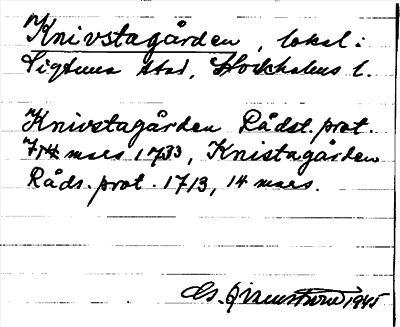 Knivstagården, lokal:
Sigtuna stad, Stockholms l.
Knivstagården Rådst. prot.
7 mars 1733, Knistagården
Råds. prot. 1713, 14 mars.
1945